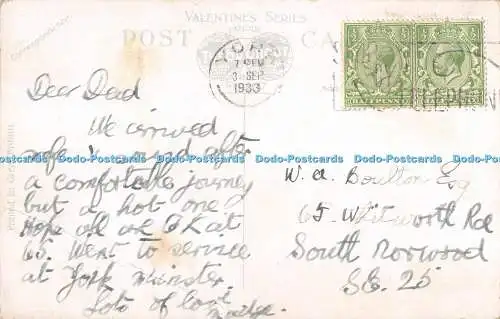 VALENTINES SERIES
POST CA
Correspondence
YORK
7 PM
3 SEP
1933
Dear Dad
We arrived
safe & sound after
a comfortable journey
but a hot one
Hope all are O K at
65. Went to service
at York Minster.
Lots of love
Madge.
W. A. Boulton Esq
65 Whitworth Rd
South Norwood
S.E. 25
Dodo-Postcards Dodo-Postcards Dodo-Postcards Dodo-Postcards Dodo-Postcards Dodo-Postcards